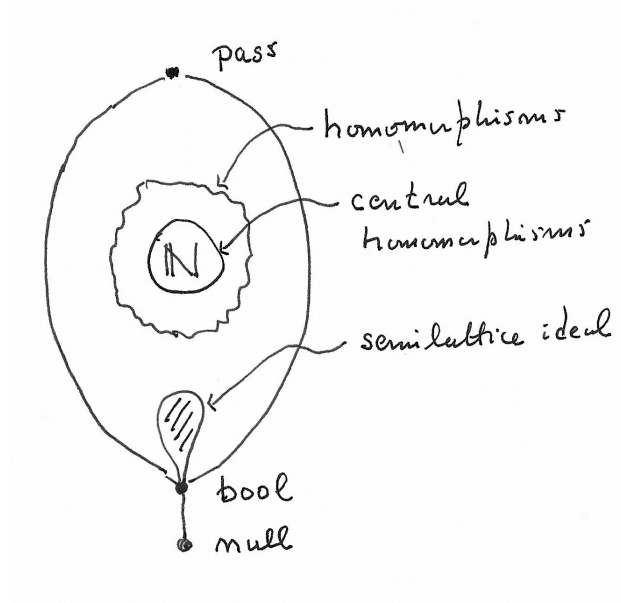 pass
homomorphisms
central
homomorphisms
N
semilattice ideal
bool
null